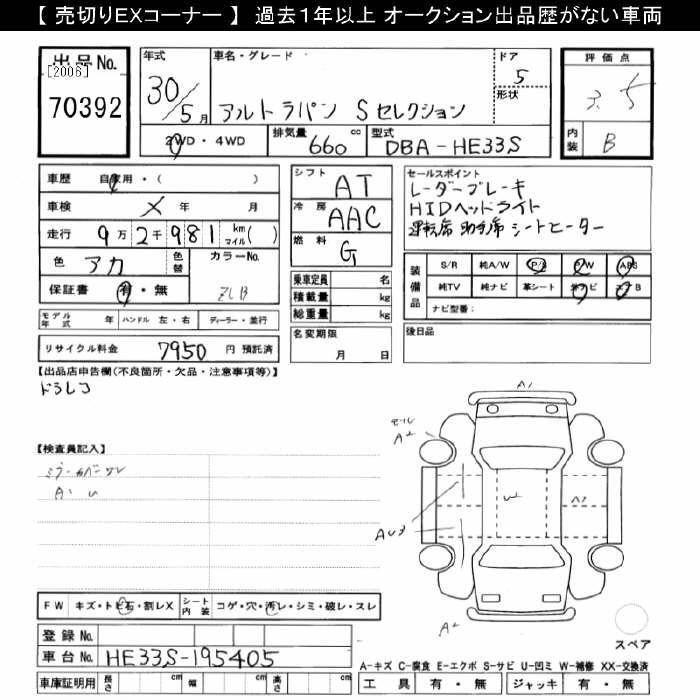 【 売切りEXコーナー 】 過去1年以上 オークション出品歴がない車両
出品No.
[2006]
70392
年式
30/5月
車名・グレード
アルトラパン Sセレクション
ドア
5
形状
評価点
3.5
内装
B
2WD・4WD
排気量 660 cc
型式 DBA-HE33S
車歴 自家用・( )
車検 × 年 月
走行 9万2千981 kmマイル( )
色 アカ
色替
カラーNo.
ZLB
保証書 有・無
シフト AT
冷房 AAC
燃料 G
セールスポイント
レーダーブレーキ
HIDヘッドライト
運転席 助手席 シートヒーター
装備品
S/R 純A/W P/S P/W ABS
純TV 純ナビ 革シート エアB
ナビ型番：
乗車定員 名
積載量 kg
総重量 kg
モデル年式 年
ハンドル 左・右
ディーラー・並行
名変期限
月 日
後日品
リサイクル料金 7950 円 預託済
【出品店申告欄(不良箇所・欠品・注意事項等)】
ドラレコ
【検査員記入】
A1
A2
A2
FW キズ・トビ石・割レX
シート内装 コゲ・穴・汚レ・シミ・破レ・スレ
登録No.
車台No. HE33S-195405
車庫証明用 長さ cm 幅 cm 高さ cm
スペア
A-キズ C-腐食 E-エクボ S-サビ U-凹ミ W-補修 XX-交換済
工具 有・無 ジャッキ 有・無